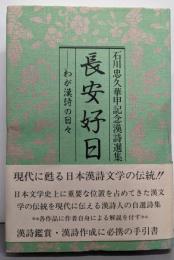 石川忠久華甲記念漢詩選集
長安好日
わが漢詩の日々
現代に甦る日本漢詩文学の伝統!!
日本文学史上に重要な位置を占めてきた漢文
学の伝統を現代に伝える漢詩人の自選詩集
各作品に作者自身による解説を付す
漢詩鑑賞・漢詩作成に必携の手引書